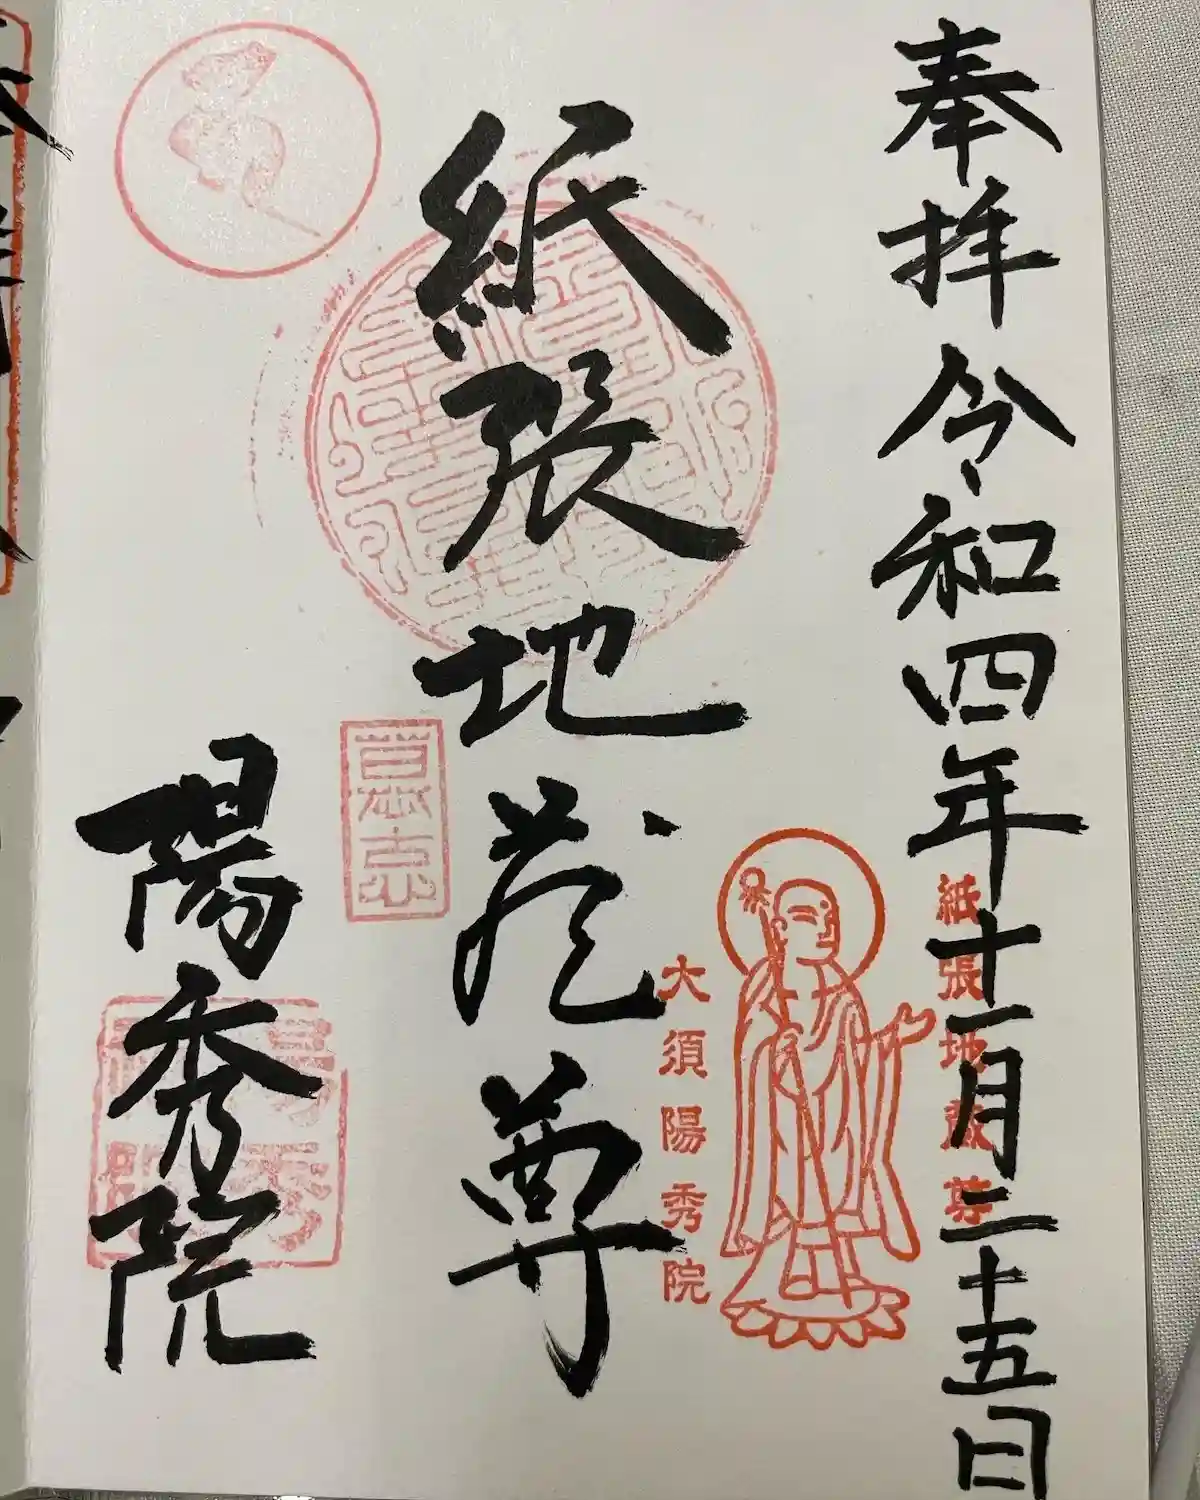 奉拝 令和四年十一月二十五日
紙張地蔵尊
紙張地蔵尊
大須陽秀院
陽秀院